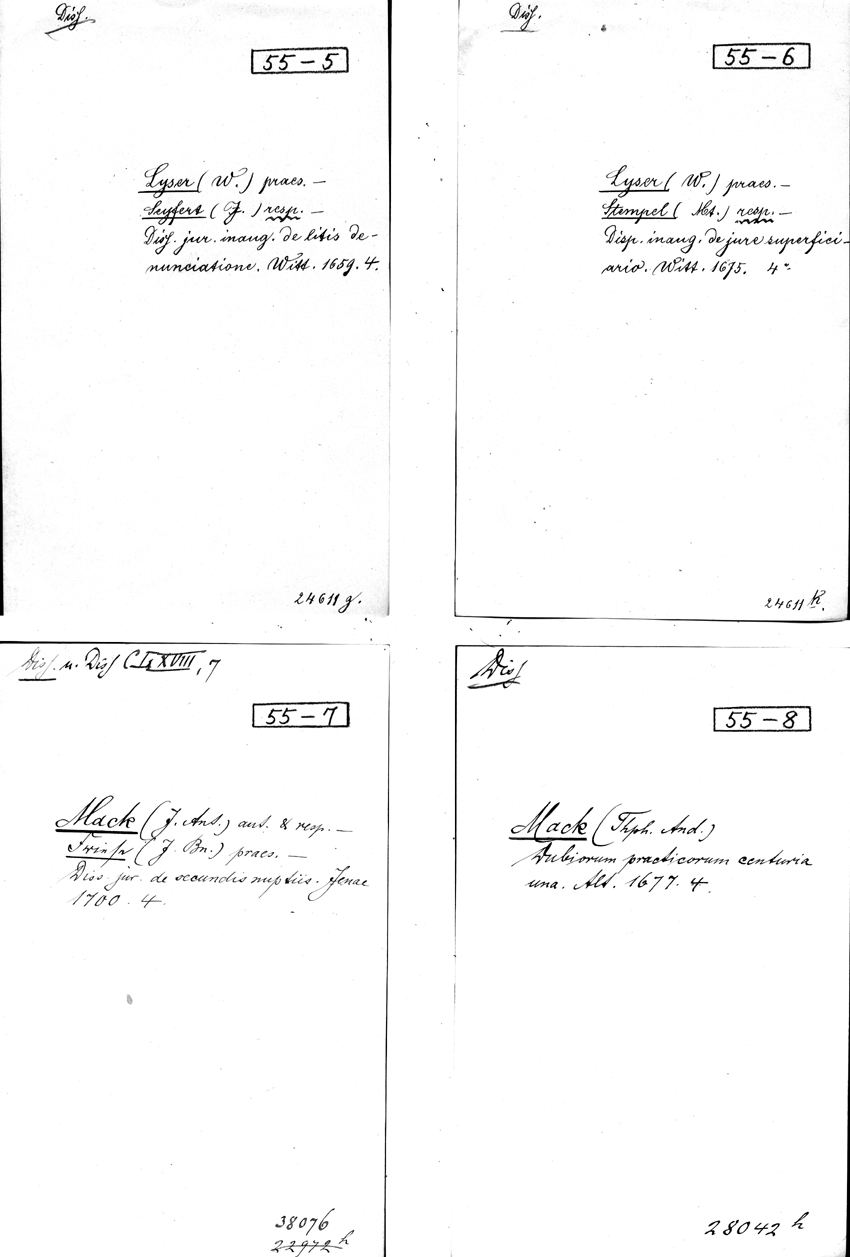 Diss.
55-5
Lyser (W.) praes. —
Seyfert (J.) resp. —
Diss. jur. inaug. de litis de-
nunciatione. Witt. 1659. 4.
24611 g.
Diss.
55-6
Lyser (W.) praes. —
Stempel (Mt.) resp. —
Disp. inaug. de jure superfici-
ario. Witt. 1675. 4°.
24611 k.
Diss. u. Diss CLXVIII, 7
55-7
Mack (J. Ant.) aut. & resp. —
Friese (J. Bn.) praes. —
Diss. jur. de secundis nuptiis. Jenae
1700. 4.
38076
22972 h
Diss
55-8
Mack (Thph. And.)
Dubiorum practicorum centuria
una. Alt. 1677. 4.
28042 h